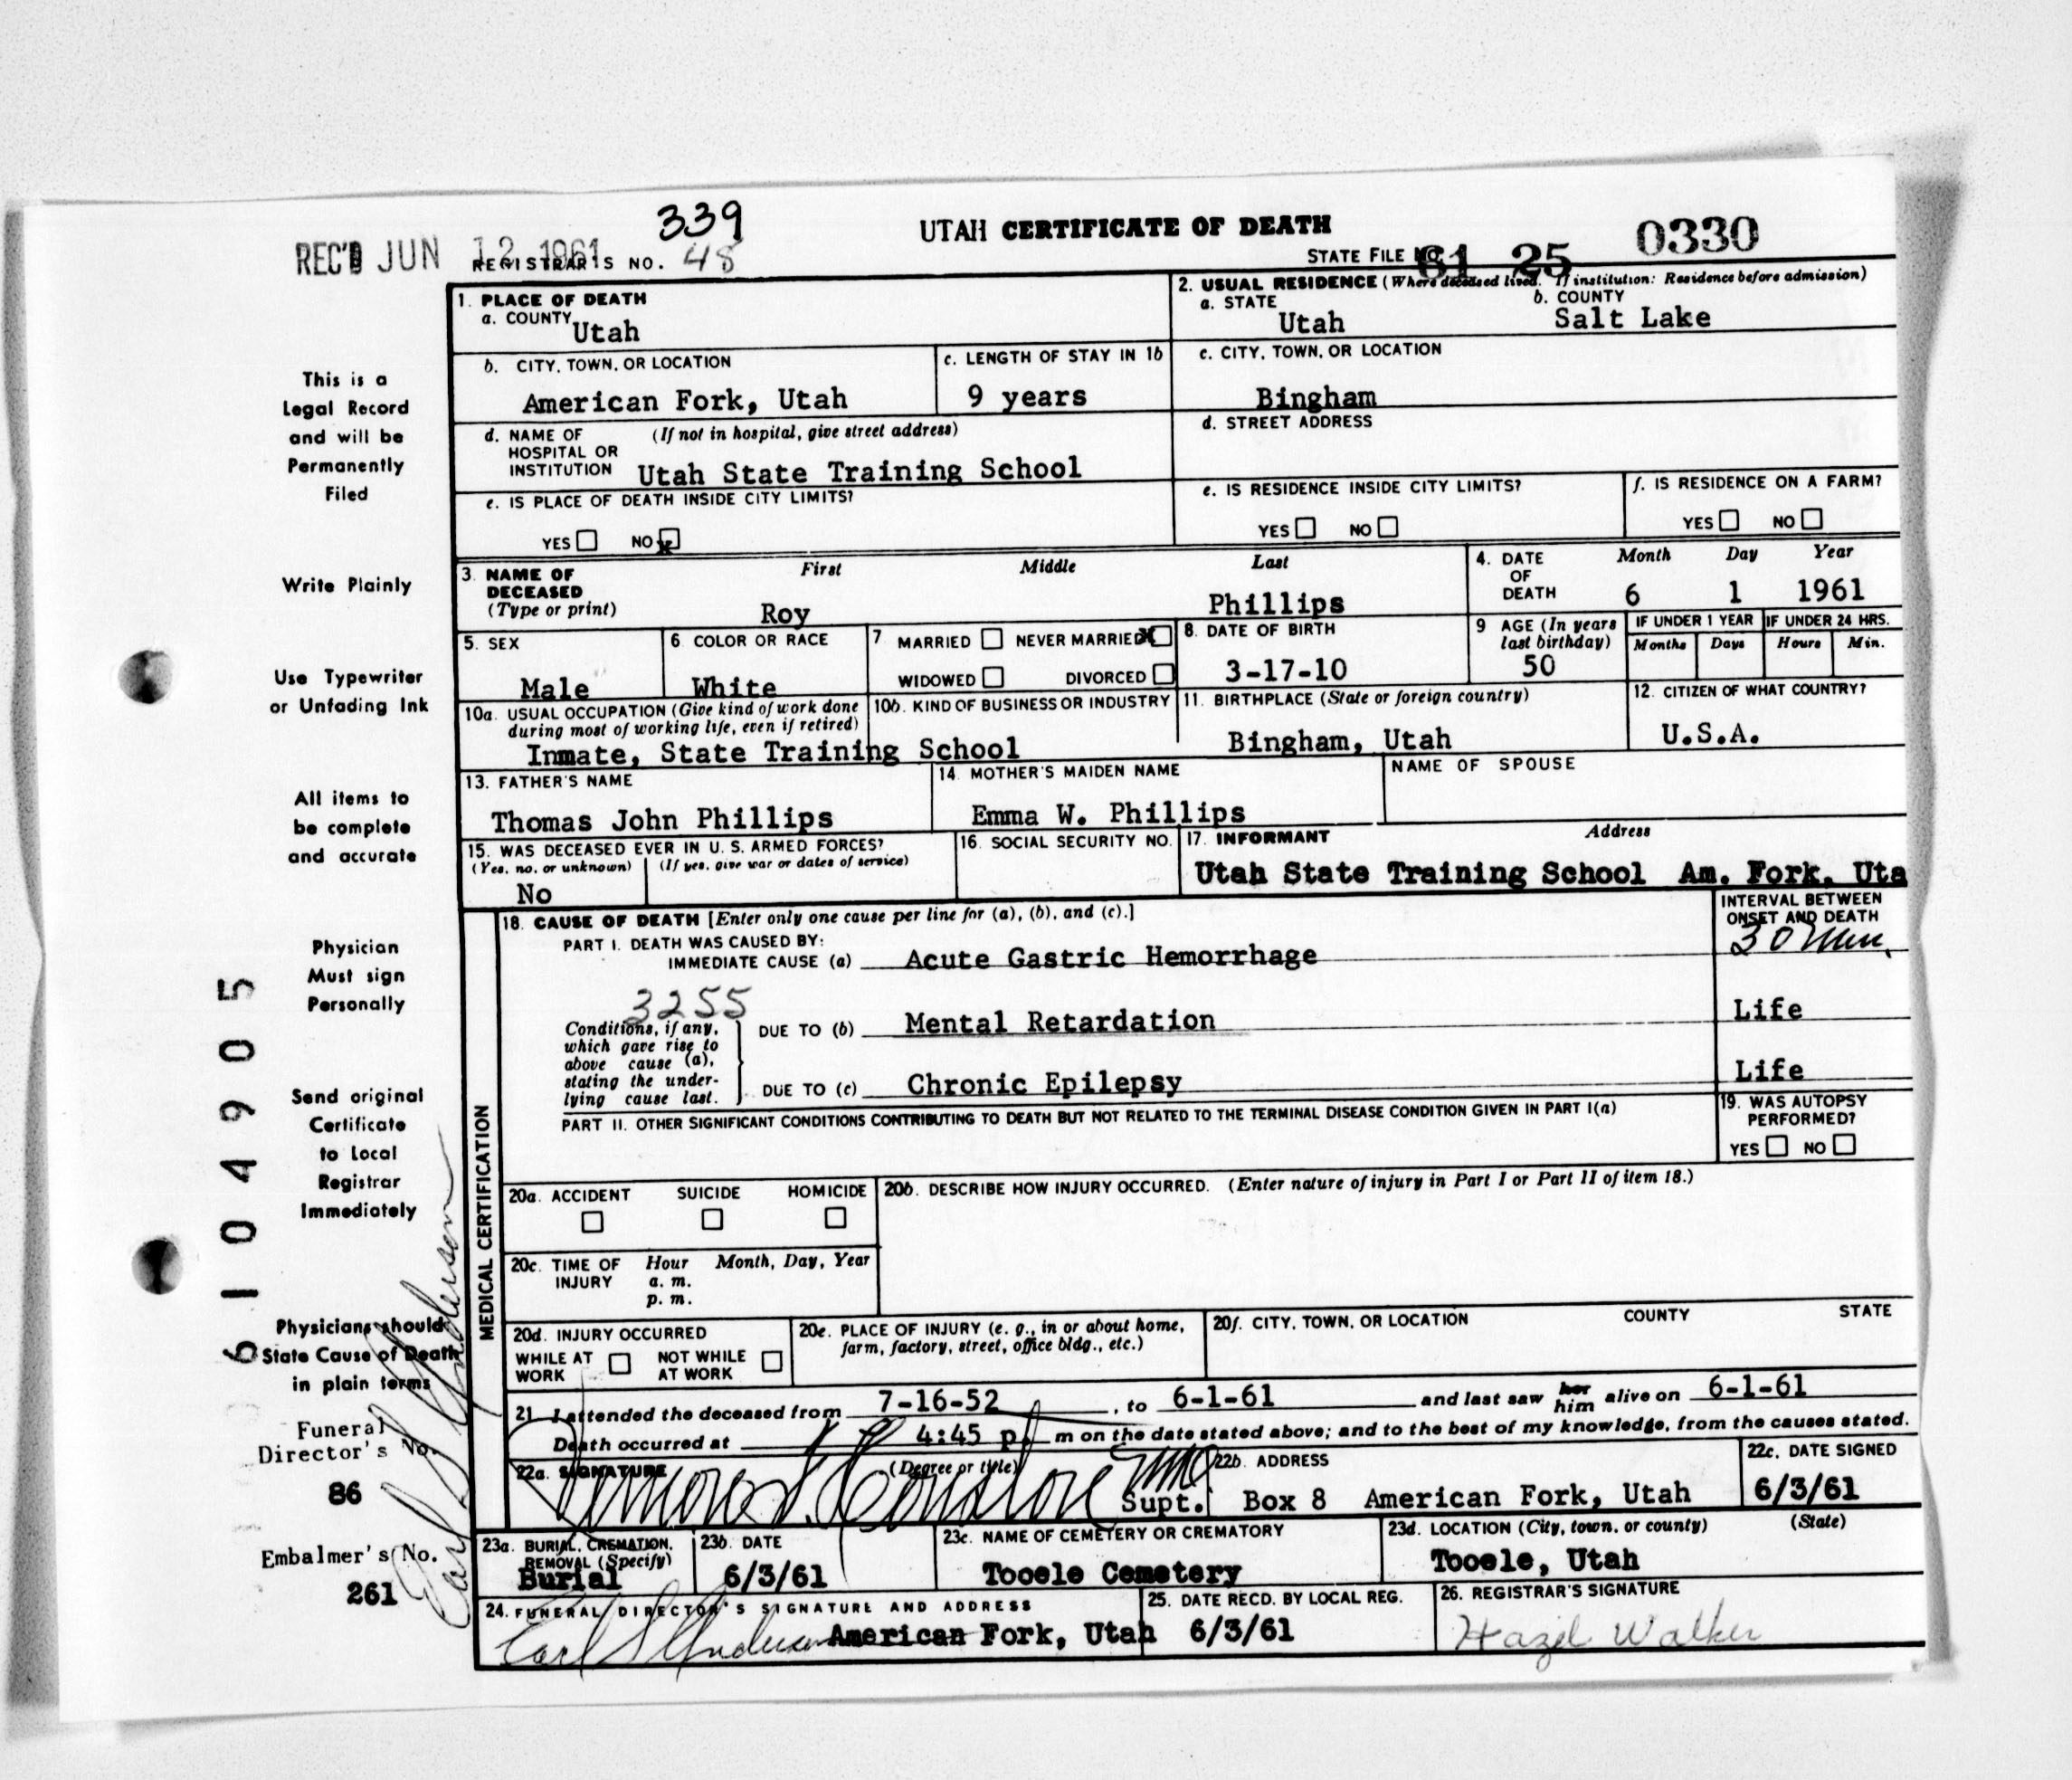 339
UTAH CERTIFICATE OF DEATH
REC'D JUN 12 1961
REGISTRAR'S NO. 48
STATE FILE NO. 61 25 0330
1. PLACE OF DEATH
a. COUNTY Utah
2. USUAL RESIDENCE (Where deceased lived. If institution: Residence before admission)
a. STATE Utah
b. COUNTY Salt Lake
b. CITY, TOWN, OR LOCATION American Fork, Utah
c. LENGTH OF STAY IN 1b 9 years
c. CITY, TOWN, OR LOCATION Bingham
d. NAME OF HOSPITAL OR INSTITUTION (If not in hospital, give street address)
Utah State Training School
d. STREET ADDRESS
e. IS PLACE OF DEATH INSIDE CITY LIMITS?
YES NO x
e. IS RESIDENCE INSIDE CITY LIMITS?
YES NO
f. IS RESIDENCE ON A FARM?
YES NO
3. NAME OF DECEASED (Type or print)
First Middle Last
Roy Phillips
4. DATE OF DEATH
Month Day Year
6 1 1961
5. SEX Male
6. COLOR OR RACE White
7 MARRIED NEVER MARRIED x
WIDOWED DIVORCED
8. DATE OF BIRTH 3-17-10
9 AGE (In years last birthday) 50
IF UNDER 1 YEAR
Months Days
IF UNDER 24 HRS.
Hours Min.
10a. USUAL OCCUPATION (Give kind of work done during most of working life, even if retired)
10b. KIND OF BUSINESS OR INDUSTRY
Inmate, State Training School
11. BIRTHPLACE (State or foreign country)
Bingham, Utah
12. CITIZEN OF WHAT COUNTRY?
U.S.A.
13. FATHER'S NAME
Thomas John Phillips
14. MOTHER'S MAIDEN NAME
Emma W. Phillips
NAME OF SPOUSE
15. WAS DECEASED EVER IN U. S. ARMED FORCES?
(Yes, no, or unknown) (If yes, give war or dates of service)
No
16. SOCIAL SECURITY NO.
17. INFORMANT Address
Utah State Training School Am. Fork, Uta
MEDICAL CERTIFICATION
18. CAUSE OF DEATH [Enter only one cause per line for (a), (b), and (c).]
INTERVAL BETWEEN ONSET AND DEATH
PART I. DEATH WAS CAUSED BY:
IMMEDIATE CAUSE (a) Acute Gastric Hemorrhage
30 Min.
3255
Conditions, if any, which gave rise to above cause (a), stating the underlying cause last.
DUE TO (b) Mental Retardation
Life
DUE TO (c) Chronic Epilepsy
Life
PART II. OTHER SIGNIFICANT CONDITIONS CONTRIBUTING TO DEATH BUT NOT RELATED TO THE TERMINAL DISEASE CONDITION GIVEN IN PART I(a)
19. WAS AUTOPSY PERFORMED?
YES NO
20a. ACCIDENT SUICIDE HOMICIDE
20b. DESCRIBE HOW INJURY OCCURRED. (Enter nature of injury in Part I or Part II of item 18.)
20c. TIME OF INJURY
Hour Month, Day, Year
a. m.
p. m.
20d. INJURY OCCURRED
WHILE AT WORK NOT WHILE AT WORK
20e. PLACE OF INJURY (e. g., in or about home, farm, factory, street, office bldg., etc.)
20f. CITY, TOWN, OR LOCATION COUNTY STATE
21. I attended the deceased from 7-16-52, to 6-1-61 and last saw her him alive on 6-1-61
Death occurred at 4:45 p. m on the date stated above; and to the best of my knowledge, from the causes stated.
22a. SIGNATURE (Degree or title)
Supt.
22b. ADDRESS
Box 8 American Fork, Utah
22c. DATE SIGNED
6/3/61
23a. BURIAL, CREMATION, REMOVAL (Specify)
Burial
23b. DATE
6/3/61
23c. NAME OF CEMETERY OR CREMATORY
Tooele Cemetery
23d. LOCATION (City, town, or county) (State)
Tooele, Utah
24. FUNERAL DIRECTOR'S SIGNATURE AND ADDRESS
Earl S Anderson American Fork, Utah
25. DATE RECD. BY LOCAL REG.
6/3/61
26. REGISTRAR'S SIGNATURE
Hazel Walker
This is a
Legal Record
and will be
Permanently
Filed
Write Plainly
Use Typewriter
or Unfading Ink
All items to
be complete
and accurate
Physician
Must sign
Personally
Send original
Certificate
to Local
Registrar
Immediately
Physicians should
State Cause of Death
in plain terms
Funeral
Director's No.
86
Embalmer's No.
261
Earl S Anderson
6104905